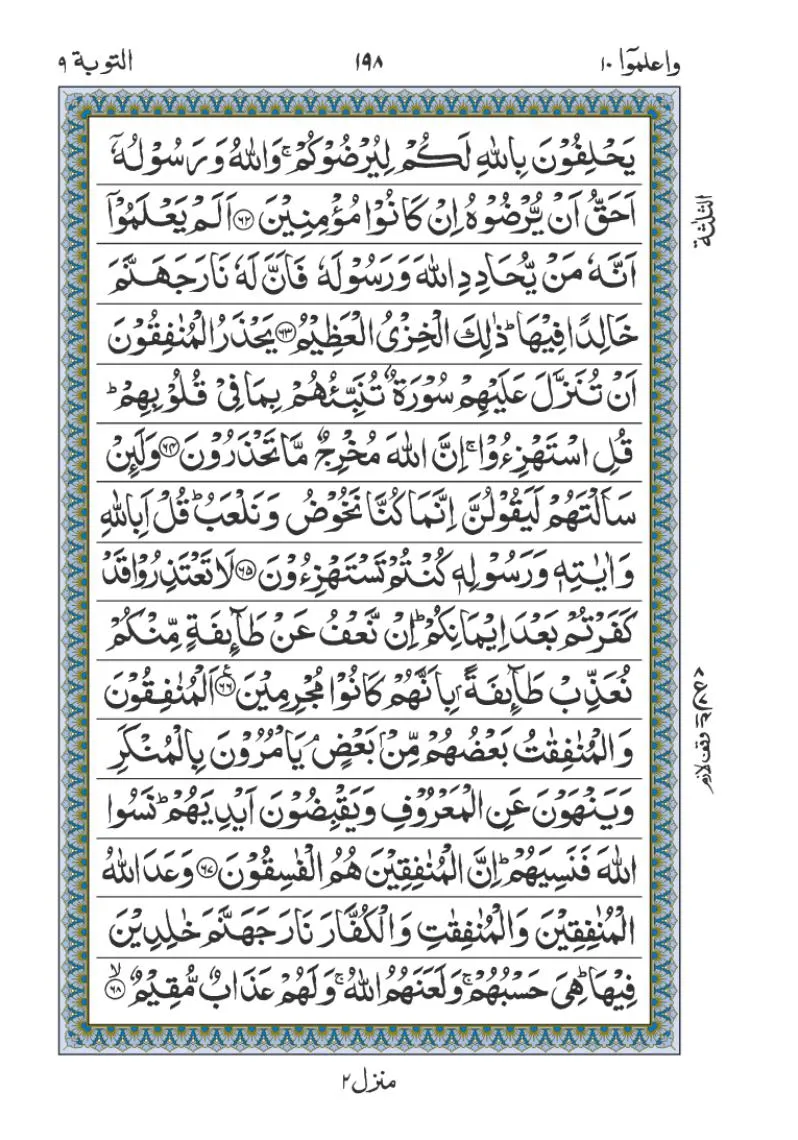 واعلموٓا ١٠ ١٩٨ التوبة ٩
يَحۡلِفُوۡنَ بِاللّٰهِ لَـكُمۡ لِيُرۡضُوۡكُمۡ‌ۚ وَاللّٰهُ وَ رَسُوۡلُهٗۤ
اَحَقُّ اَنۡ يُّرۡضُوۡهُ اِنۡ كَانُوۡا مُؤۡمِنِيۡنَ ﴿۶۲﴾ اَلَمۡ يَعۡلَمُوۡۤا
اَنَّهٗ مَنۡ يُّحَادِدِ اللّٰهَ وَرَسُوۡلَهٗ فَاَنَّ لَهٗ نَارَ جَهَـنَّمَ
خَالِدًا فِيۡهَا‌ؕ ذٰلِكَ الۡخِزۡىُ الۡعَظِيۡمُ ﴿۶۳﴾ يَحۡذَرُ الۡمُنٰفِقُوۡنَ
اَنۡ تُنَزَّلَ عَلَيۡهِمۡ سُوۡرَةٌ تُنَبِّئُهُمۡ بِمَا فِىۡ قُلُوۡبِهِمۡ‌ؕ
قُلِ اسۡتَهۡزِءُوۡا‌ۚ اِنَّ اللّٰهَ مُخۡرِجٌ مَّا تَحۡذَرُوۡنَ ﴿۶۴﴾ وَلَٮِٕنۡ
سَاَلۡتَهُمۡ لَيَقُوۡلُنَّ اِنَّمَا كُنَّا نَخُوۡضُ وَنَلۡعَبُ‌ؕ قُلۡ اَبِاللّٰهِ
وَاٰيٰتِهٖ وَرَسُوۡلِهٖ كُنۡتُمۡ تَسۡتَهۡزِءُوۡنَ ﴿۶۵﴾ لَا تَعۡتَذِرُوۡا قَدۡ
كَفَرۡتُمۡ بَعۡدَ اِيۡمَانِكُمۡ‌ؕ اِنۡ نَّـعۡفُ عَنۡ طَآٮِٕفَةٍ مِّنۡكُمۡ
نُـعَذِّبۡ طَآٮِٕفَةًۢ بِاَنَّهُمۡ كَانُوۡا مُجۡرِمِيۡنَ ﴿۶۶﴾ اَلۡمُنٰفِقُوۡنَ
وَالۡمُنٰفِقٰتُ بَعۡضُهُمۡ مِّنۡۢ بَعۡضٍ‌ۘ يَاۡمُرُوۡنَ بِالۡمُنۡكَرِ
وَيَنۡهَوۡنَ عَنِ الۡمَعۡرُوۡفِ وَيَقۡبِضُوۡنَ اَيۡدِيَهُمۡ‌ؕ نَسُوا
اللّٰهَ فَنَسِيَهُمۡ‌ؕ اِنَّ الۡمُنٰفِقِيۡنَ هُمُ الۡفٰسِقُوۡنَ ﴿۶۷﴾ وَعَدَ اللّٰهُ
الۡمُنٰفِقِيۡنَ وَالۡمُنٰفِقٰتِ وَالۡـكُفَّارَ نَارَ جَهَـنَّمَ خٰلِدِيۡنَ
فِيۡهَا‌ؕ هِىَ حَسۡبُهُمۡ‌ۚ وَلَـعَنَهُمُ اللّٰهُ‌ۚ وَلَهُمۡ عَذَابٌ مُّقِيۡمٌ ۙ‏ ﴿۶۸﴾
الثلثة
وقف لازم
منزل ٢